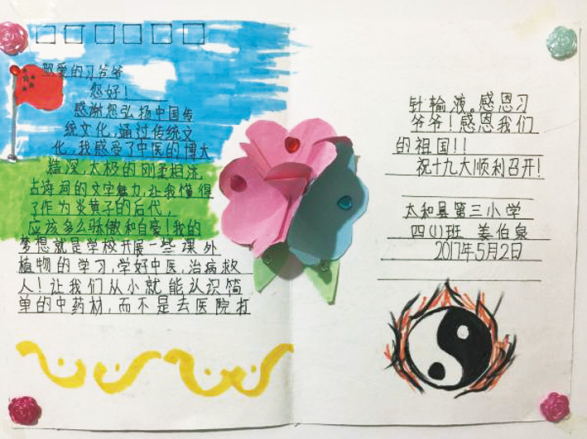 亲爱的习爷爷
您好！
感谢您弘扬中国传
统文化，通过传统文
化，我感受了中医的博大
精深，太极的刚柔相济，
古诗词的文字魅力，让我懂得
了作为炎黄子的后代，
应该多么骄傲和自爱！我的
梦想就是学校开展一些课外
植物的学习，学好中医，治病救
人！让我们从小就能认识简
单的中药材，而不是去医院打
针输液。感恩习
爷爷！感恩我们
的祖国！！
祝十九大顺利召开！
太和县第三小学
四(1)班 姜伯泉
2017年5月2日